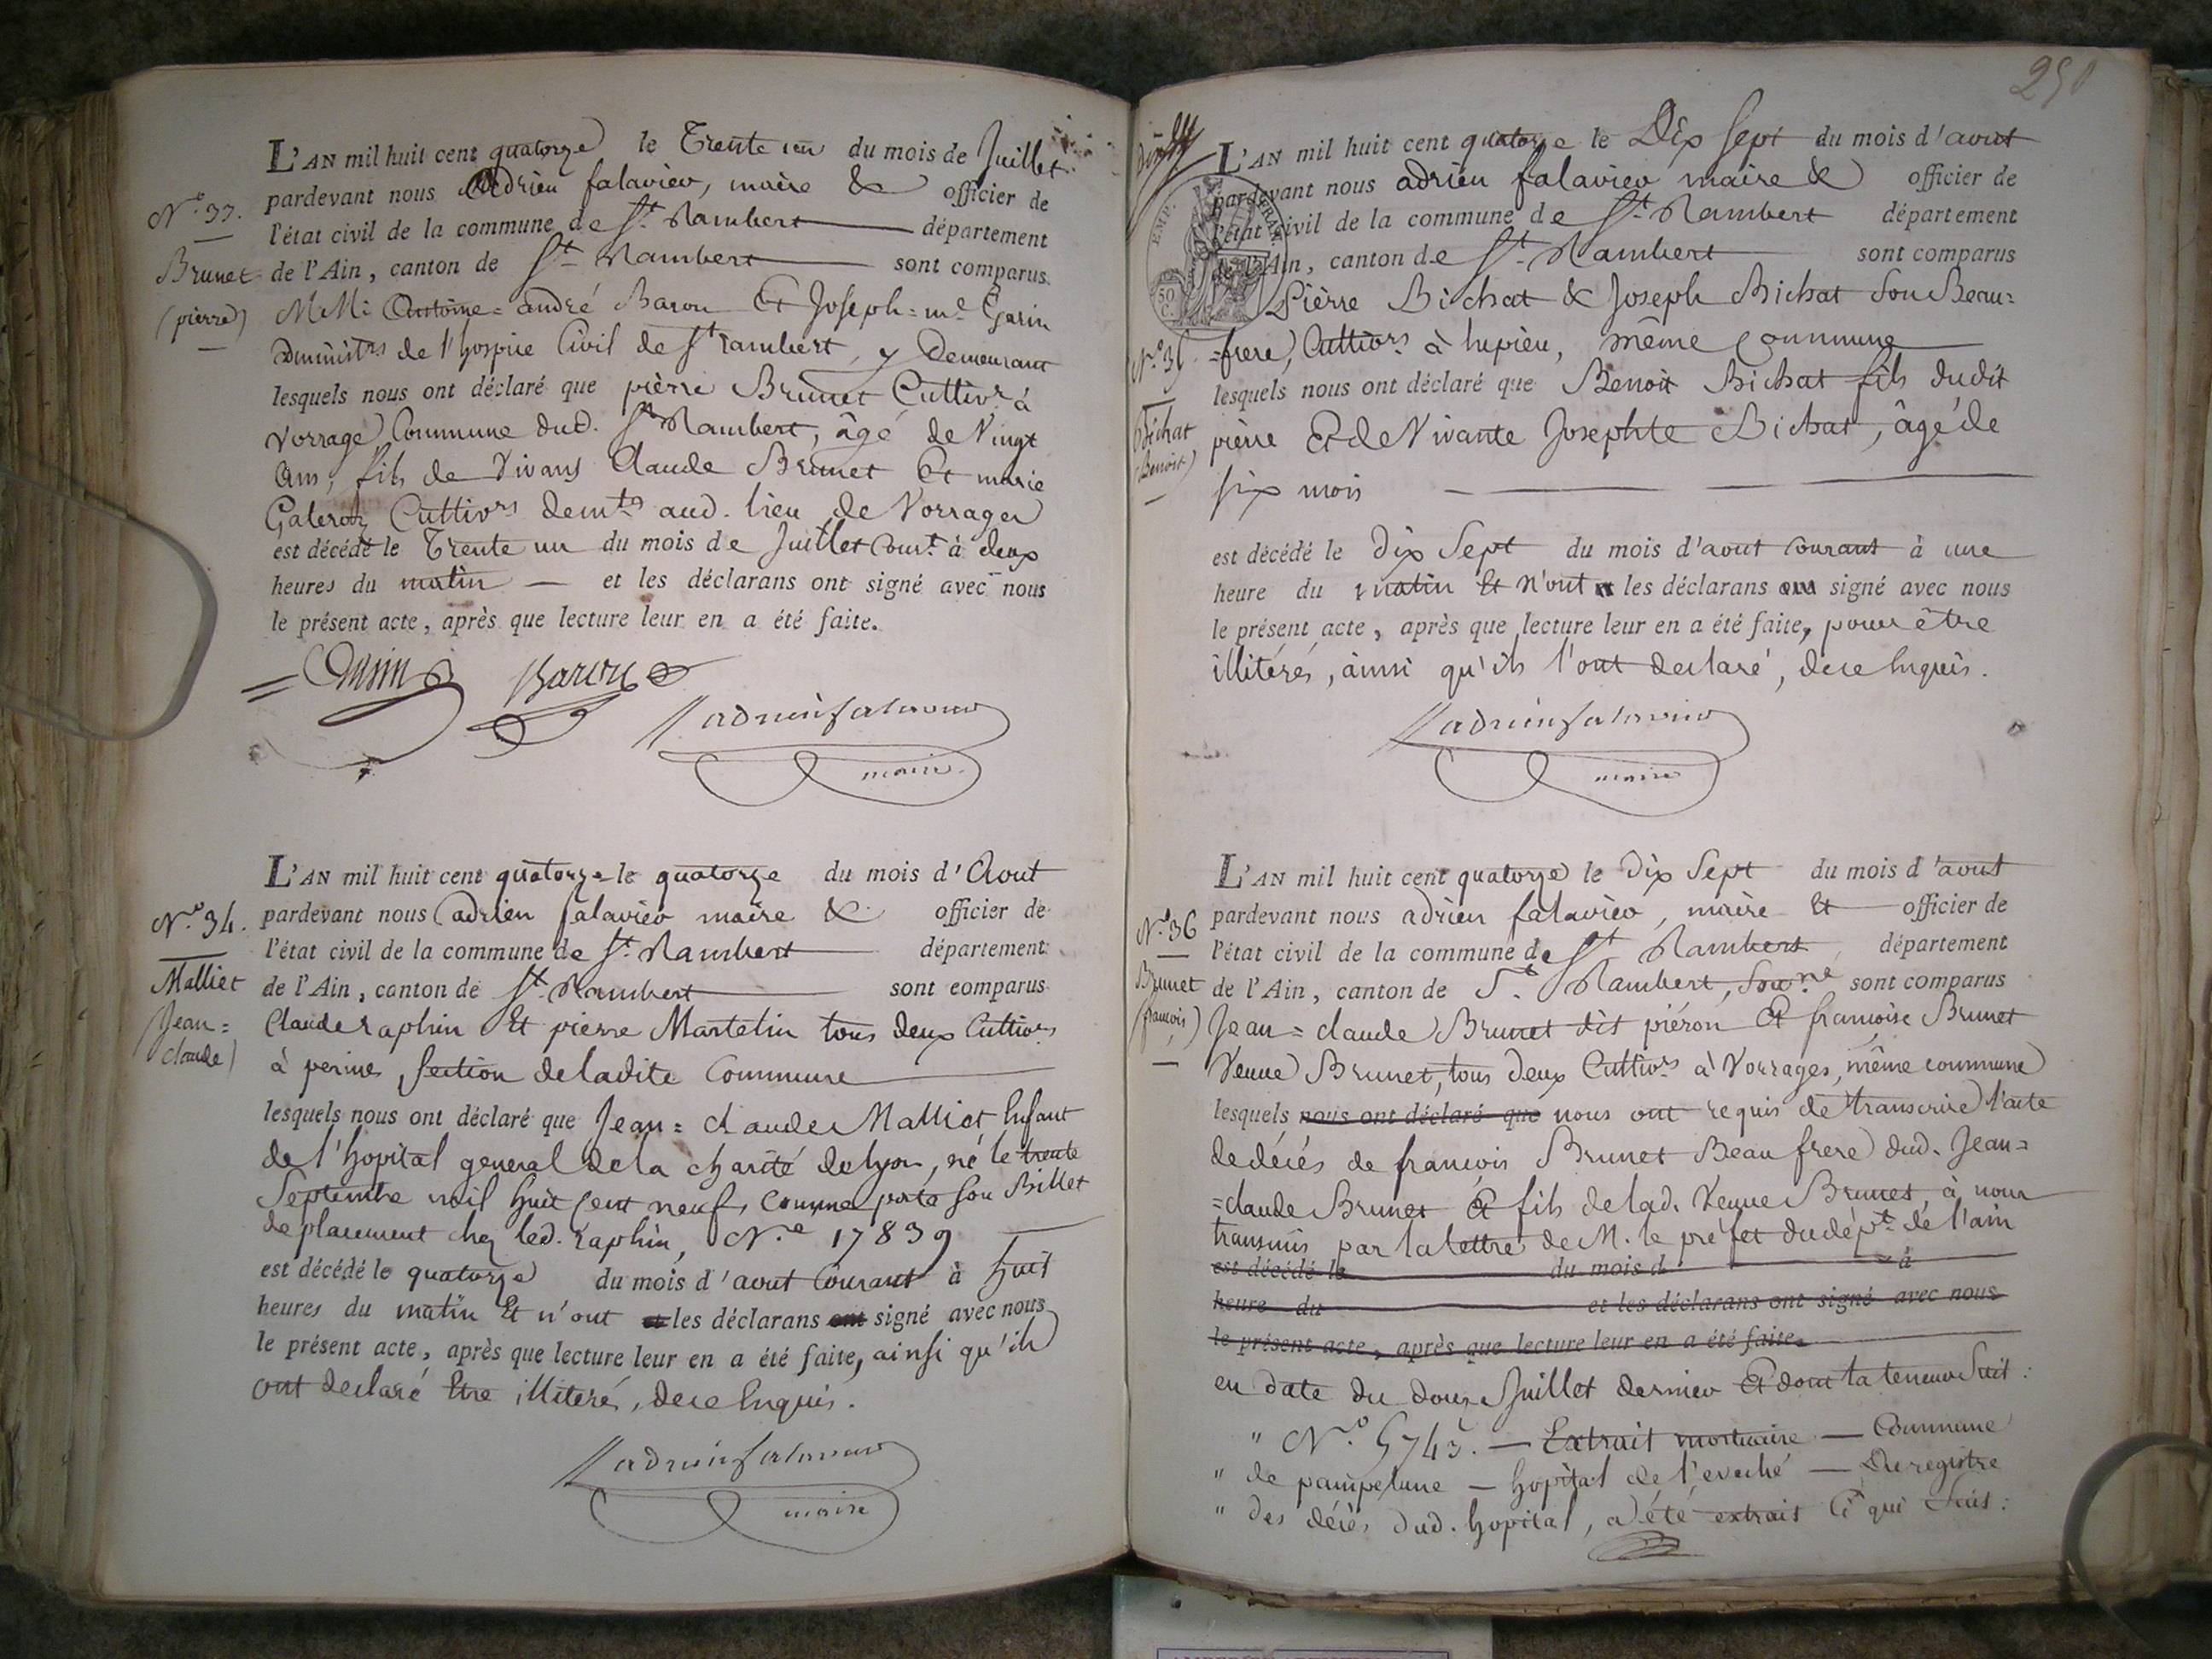 L'AN mil huit cent quatorze le Trente un du mois de Juillet
N.º 33.
pardevant nous Adrien falavier, maire & officier de
l'état civil de la commune de St. Rambert département
Brunet
(pierre)
de l'Ain, canton de St. Rambert sont comparus
MM. Antoine = andré Baron Et Joseph = m.e Garin
administrs de l'hospice Civil de St rambert, y Demeurant
lesquels nous ont déclaré que pièrre Brunet Cultivr. à
Vorrage Commune dud. St Rambert, âgé de Vingt
ans, fils de Vivans Claude Brunet Et marie
Cultivrs demts aud. lieu de Vorrages
est décédé le Trente un du mois de Juillet Court. à deux
heures du matin — et les déclarans ont signé avec nous
le présent acte, après que lecture leur en a été faite.
Baron
adrien falavier
maire
L'AN mil huit cent quatorze le quatorze du mois d'Aout
N.º 34.
pardevant nous adrien falavier maire & officier de
l'état civil de la commune de St. Rambert département
Malliet
(Jean =
claude)
de l'Ain, canton de St. Rambert sont comparus
Claude raphin Et pierre Martelin tous deux Cultivrs
à perines, Section de ladite Commune
lesquels nous ont déclaré que Jean = claude Malliet Enfant
de l'hopital general de la charité de lyon, né le trente
Septembre mil huit cent neuf, comme porte son Billet
de placement chez led. raphin, N.e 17839
est décédé le quatorze du mois d'aout Courant à huit
heures du matin Et n'ont et les déclarans ont signé avec nous
le présent acte, après que lecture leur en a été faite, ainsi qu'ils
ont declaré Etre illiteré, de ce Enquis.
adrien falavier
maire
250
L'AN mil huit cent quatorze le Dix Sept du mois d'aout
pardevant nous adrien falavier maire & officier de
l'état civil de la commune de St. Rambert département
de l'Ain, canton de St. Rambert sont comparus
EMP.
50
C.
Pièrre Bichat & Joseph Bichat Son Beau =
N.º 35.
= frere, Cultivrs. à lupieu, même commune
lesquels nous ont déclaré que Benoit Bichat fils dudit
Bichat
(Benoit)
pièrre Et de Vivante Josephte Bichat, âgé de
six mois
est décédé le dix Sept du mois d'aout courant à une
heure du matin Et N'ont les déclarans signé avec nous
le présent acte, après que lecture leur en a été faite, pour être
illitérés, ainsi qu'ils l'ont declaré, de ce Enquis.
adrien falavier
maire
L'AN mil huit cent quatorze le Dix Sept du mois d'aout
N.º 36
pardevant nous adrien falavier, maire Et officier de
l'état civil de la commune de St Rambert département
Brunet
(francois)
de l'Ain, canton de St. Rambert, sont comparus
Jean = claude Brunet dit piéron Et francoise Brunet
Veuve Brunet, tous deux Cultivrs. à Vorrages, même commune
lesquels nous ont déclaré que nous ont requis de transcrire l'acte
de décés de francois Brunet Beau frere dud. Jean =
= claude Brunet Et fils de lad. Veuve Brunet, à nous
transmis par la lettre de M. le préfet du dépt. de l'ain
est décédé le du mois d à
heure du et les déclarans ont signé avec nous
le présent acte, après que lecture leur en a été faite.
en date du douze Juillet dernier Et dont la teneur Suit :
" N.º 5743. — Extrait mortuaire — Commune
" de pampelune — hopital de l'eveché — Du registre
" des décès dud. hopital, a été extrait Ce qui Suit :